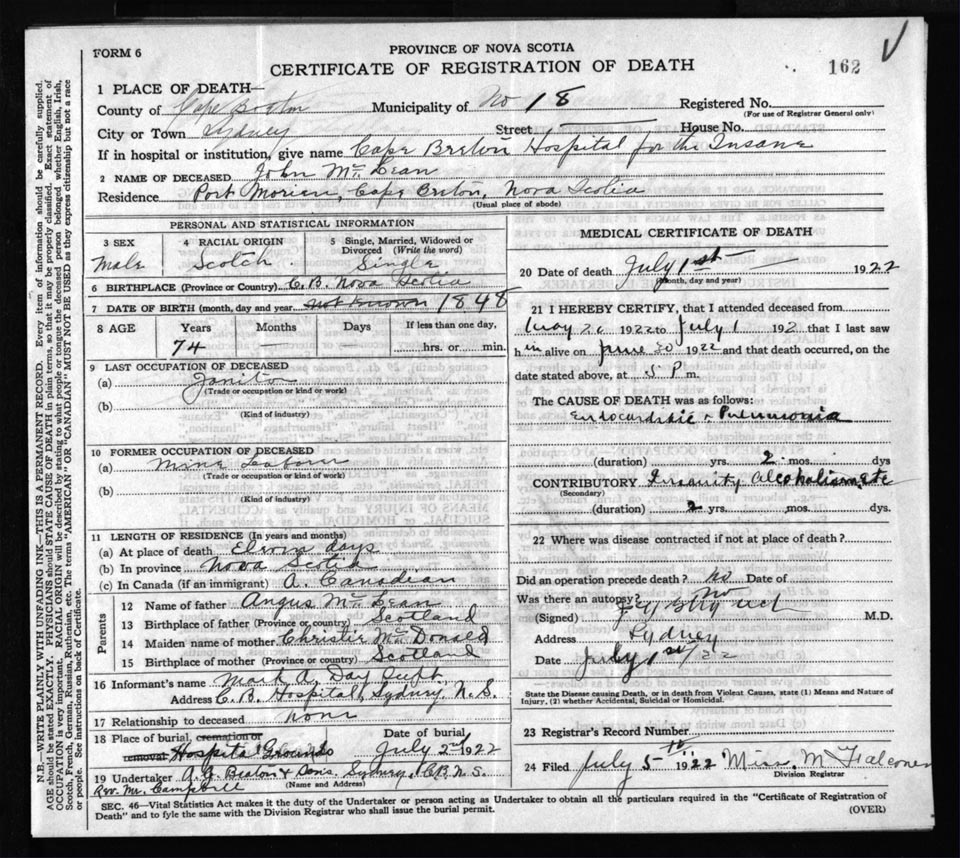 FORM 6
PROVINCE OF NOVA SCOTIA
CERTIFICATE OF REGISTRATION OF DEATH
162
1 PLACE OF DEATH—
County of Cape Breton Municipality of No 18 Registered No.
(For use of Registrar General only)
City or Town Sydney Street House No.
If in hospital or institution, give name Cape Breton Hospital for the Insane
2 NAME OF DECEASED John McLean
Residence Port Morien, Cape Breton, Nova Scotia
(Usual place of abode)
PERSONAL AND STATISTICAL INFORMATION
3 SEX 4 RACIAL ORIGIN 5 Single, Married, Widowed or Divorced (Write the word)
Male Scotch Single
6 BIRTHPLACE (Province or Country) C.B. Nova Scotia
7 DATE OF BIRTH (month, day and year) not known 1848
8 AGE Years Months Days If less than one day,
74 hrs. or min.
9 LAST OCCUPATION OF DECEASED
(a) Janitor
(Trade or occupation or kind or work)
(b)
(Kind of industry)
10 FORMER OCCUPATION OF DECEASED
(a) Mine
(Trade or occupation or kind of work)
(b)
(Kind of industry)
11 LENGTH OF RESIDENCE (In years and months)
(a) At place of death Eleven days
(b) In province Nova Scotia
(c) In Canada (if an immigrant) A. Canadian
Parents
12 Name of father Angus McLean
13 Birthplace of father (Province or country) Scotland
14 Maiden name of mother Christie McDonald
15 Birthplace of mother (Province or country) Scotland
16 Informant's name Mark A. Day Supt.
Address C.B. Hospital, Sydney, N.S.
17 Relationship to deceased none
18 Place of burial, cremation or removal Hospital Grounds
Date of burial
July 2nd 1922
19 Undertaker A.J. Beaton & Sons. Sydney, C.B.N.S.
(Name and Address)
Rev. Mr. Campbell
MEDICAL CERTIFICATE OF DEATH
20 Date of death July 1st 1922
(Month, day and year)
21 I HEREBY CERTIFY, that I attended deceased from
1922 to July 1 192 that I last saw
him alive on June 30 1922 and that death occurred, on the
date stated above, at 5 P m.
The CAUSE OF DEATH was as follows:
Endocarditis & Pneumonia
(duration) yrs. 2 mos. dys
CONTRIBUTORY Insanity
(Secondary)
(duration) 2 yrs. mos. dys.
22 Where was disease contracted if not at place of death?
Did an operation precede death? No Date of
Was there an autopsy? No
(Signed) M.D.
Address Sydney
Date July 1st/22
State the Disease causing Death, or in death from Violent Causes, state (1) Means and Nature of
Injury, (2) whether Accidental, Suicidal or Homicidal.
23 Registrar's Record Number
24 Filed July 5th 1922 Miss. M Falconer
Division Registrar
SEC. 46—Vital Statistics Act makes it the duty of the Undertaker or person acting as Undertaker to obtain all the particulars required in the "Certificate of Registration of
Death" and to fyle the same with the Division Registrar who shall issue the burial permit.
(OVER)
N.B.—WRITE PLAINLY WITH UNFADING INK—THIS IS A PERMANENT RECORD. Every item of information should be carefully supplied.
AGE should be stated EXACTLY. PHYSICIANS should STATE CAUSE OF DEATH in plain terms, so that it may be properly classified. Exact statement of
OCCUPATION is very important. RACIAL ORIGIN will be described by stating to what people or tongue the deceased person belonged whether English, Irish,
Scotch, French, German, Russian, Ruthenian, etc. The terms "AMERICAN" OR "CANADIAN" MUST NOT BE USED as they express citizenship but not a race
or people. See instructions on back of Certificate.